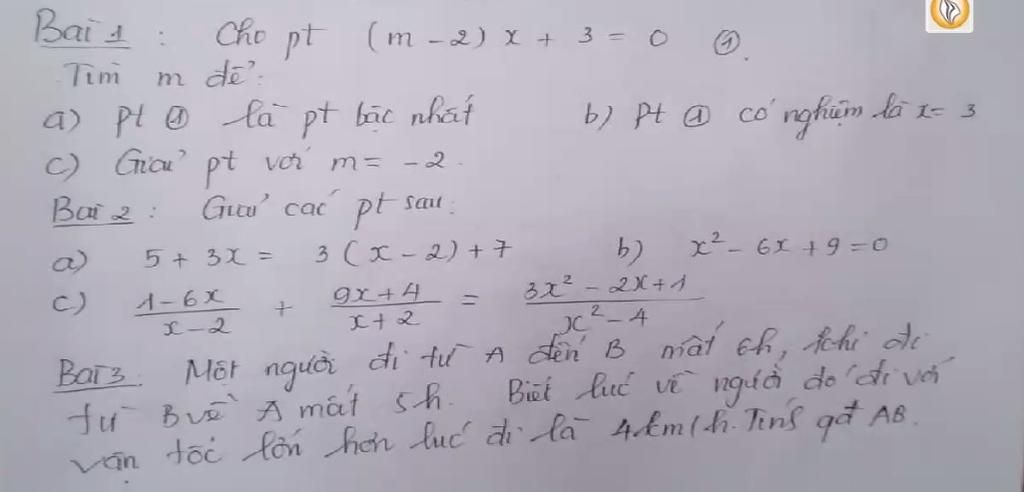 Bài 1 : Cho pt (m - 2) x + 3 = 0 ①.
Tìm m để :
a) pt ① là pt bậc nhất b) pt ① có nghiệm là x = 3
c) Giải pt với m = -2.
Bài 2 : Giải các pt sau :
a) 5 + 3x = 3 (x - 2) + 7 b) x² - 6x + 9 = 0
c) (1 - 6x)/(x - 2) + (9x + 4)/(x + 2) = (3x² - 2x + 1)/(x² - 4)
Bài 3 : Một người đi từ A đến B mất 6h, khi đi
từ B về A mất 5h. Biết lúc về người đó đi với
vận tốc lớn hơn lúc đi là 4km/h. Tính qđ AB.